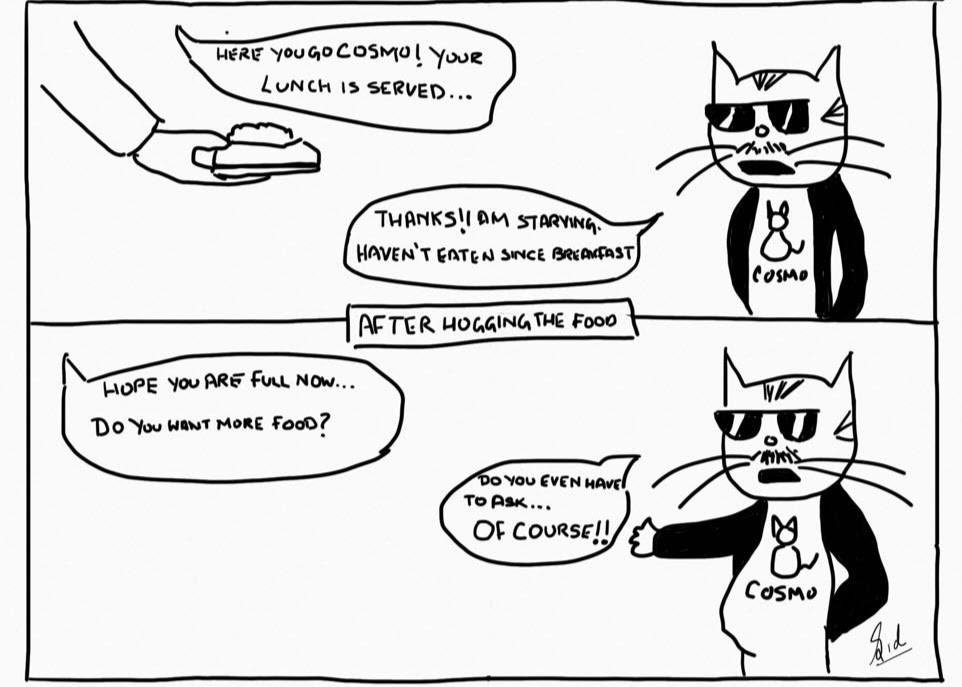 HERE YOU GO COSMO! YOUR
LUNCH IS SERVED...
THANKS!! AM STARVING.
HAVEN'T EATEN SINCE BREAKFAST
COSMO
AFTER HOGGING THE FOOD
HOPE YOU ARE FULL NOW...
DO YOU WANT MORE FOOD?
DO YOU EVEN HAVE
TO ASK...
OF COURSE!!
COSMO
Sid